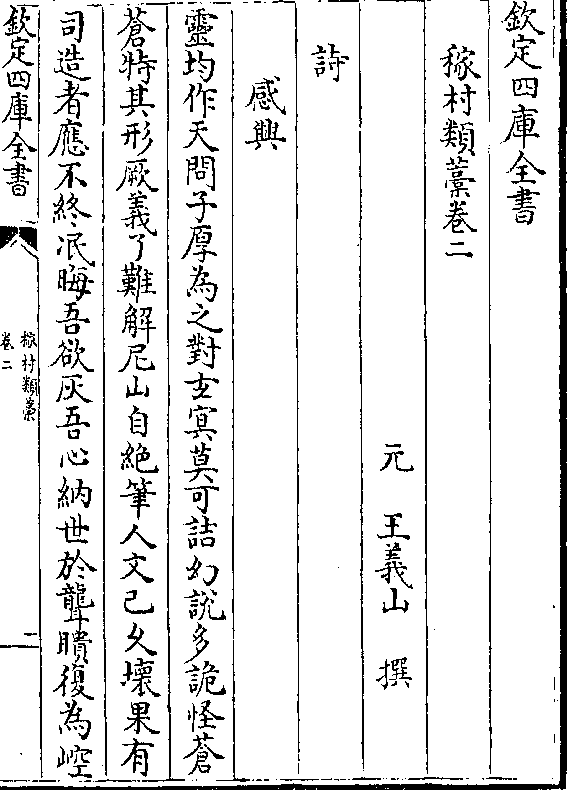 欽定四庫全書
稼村類藁卷二
元 王義山 撰
詩
感興
靈均作天問子厚為之對玄冥莫可詰幻說多詭怪蒼
蒼特其形厥義了難解尼山自絕筆人文已久壞果有
司造者應不終泯晦吾欲灰吾心納世於聾瞶復為崆
欽定四庫全書
稼村類藁
卷二
一